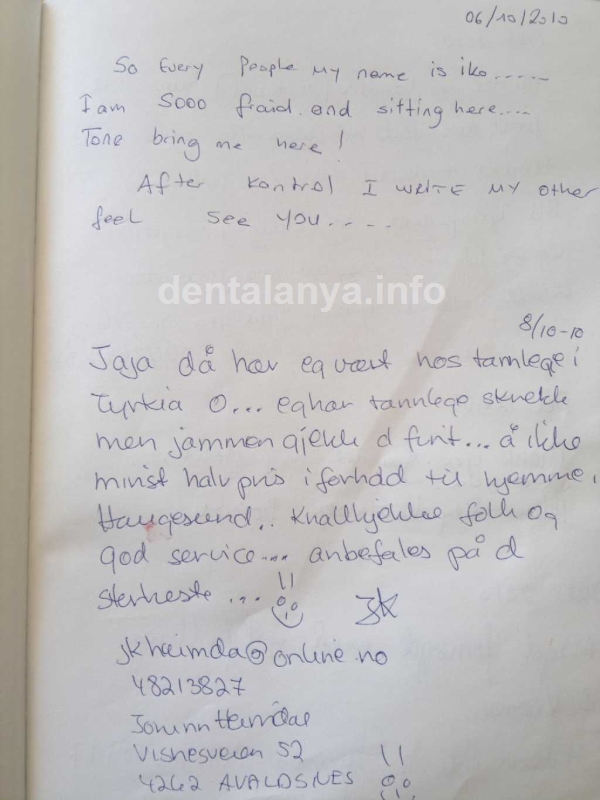 06/10/2010
So Every People my name is iko.....
I am Sooo fraid and sitting here....
Tone bring me here!
After Kontrol I WRITE MY other
feel See YOU.....
dentalanya.info
8/10-10
Jaja då har eg vært hos tannlege i
Tyrkia O... eg har tannlege skrekk
men jammen gjekk d fint... å ikke
minst halv pris i forhold til hjemme i
Haugesund.. Knallkjekke folk og
god service... anbefales på d
sterkeste ...!!
JK
jkheimda@online.no
48213827
Jorunn Heimdal
Visnesveien 52
4262 AVALDSNES !!